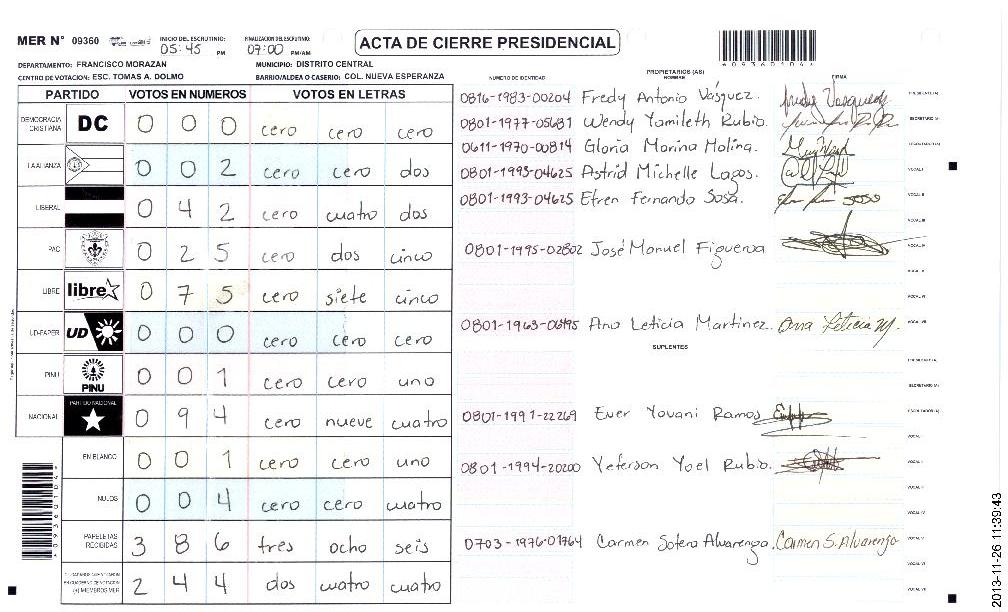 MER N° 09360
INICIO DEL ESCRUTINIO: 05:45 PM
FINALIZACION DEL ESCRUTINIO: 07:00 PM/AM
ACTA DE CIERRE PRESIDENCIAL
DEPARTAMENTO: FRANCISCO MORAZAN MUNICIPIO: DISTRITO CENTRAL
CENTRO DE VOTACION: ESC. TOMAS A. DOLMO BARRIO/ALDEA O CASERIO: COL. NUEVA ESPERANZA
PARTIDO VOTOS EN NUMEROS VOTOS EN LETRAS
DEMOCRACIA CRISTIANA DC 0 0 0 cero cero cero
LA ALIANZA 0 0 2 cero cero dos
LIBERAL 0 4 2 cero cuatro dos
PAC 0 2 5 cero dos cinco
LIBRE libre 0 7 5 cero siete cinco
UD-FAPER UD 0 0 0 cero cero cero
PINU PINU 0 0 1 cero cero uno
NACIONAL PARTIDO NACIONAL 0 9 4 cero nueve cuatro
EN BLANCO 0 0 1 cero cero uno
NULOS 0 0 4 cero cero cuatro
PAPELETAS RECIBIDAS 3 8 6 tres ocho seis
(+) MIEMBROS MER 2 4 4 dos cuatro cuatro
NUMERO DE IDENTIDAD PROPIETARIOS (AS) NOMBRE FIRMA
0816-1983-00204 Fredy Antonio Vásquez. Fredy Vasquez
0801-1977-05681 Wendy Yamileth Rubio.
0611-1970-00814 Gloria Marina Molina.
0801-1993-04625 Astrid Michelle Lagos.
0801-1993-04625 Efren Fernando Sosa.
0801-1995-02802 José Manuel Figueroa
0801-1963-06495 Ana Leticia Martinez. Ana Leticia M.
SUPLENTES
0801-1991-22269 Ever Yovani Ramos
0801-1994-20200 Yeferson Yoel Rubio.
0703-1976-01964 Carmen Sotero Alvarenga. Carmen S. Alvarenga
2013-11-26 11:39:43